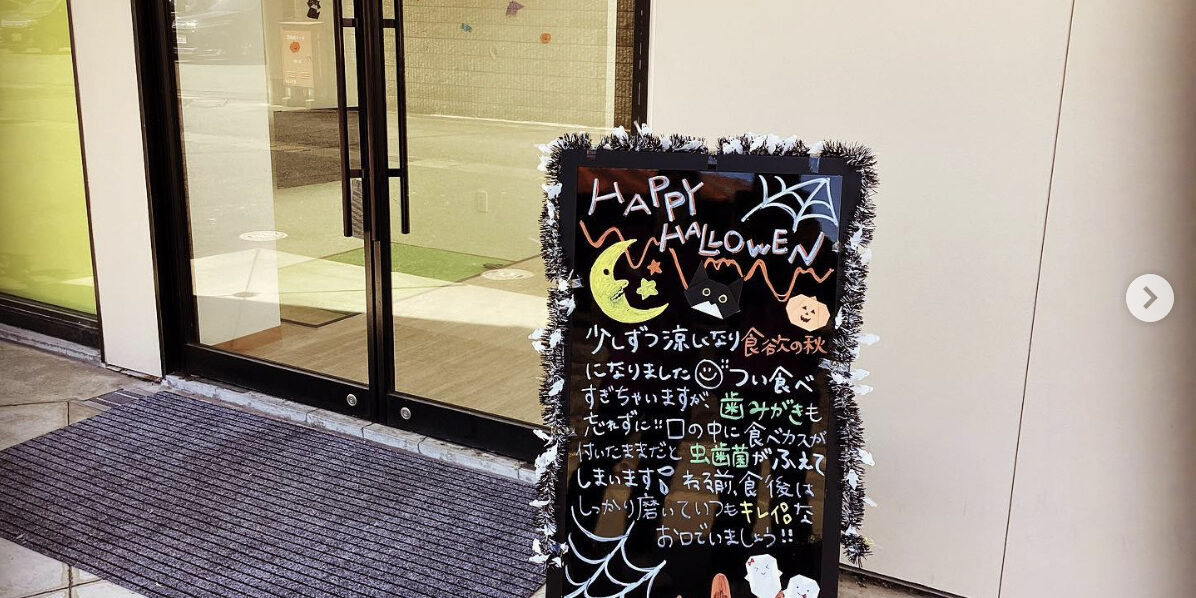 HAPPY
HALLOWEEN
少しずつ涼しくなり食欲の秋
になりました つい食べ
すぎちゃいますが、歯みがきも
忘れずに!!口の中に食べカスが
付いたままだと虫歯菌がふえて
しまいます! ねる前、食後は
しっかり磨いていつもキレイな
お口でいましょう!!